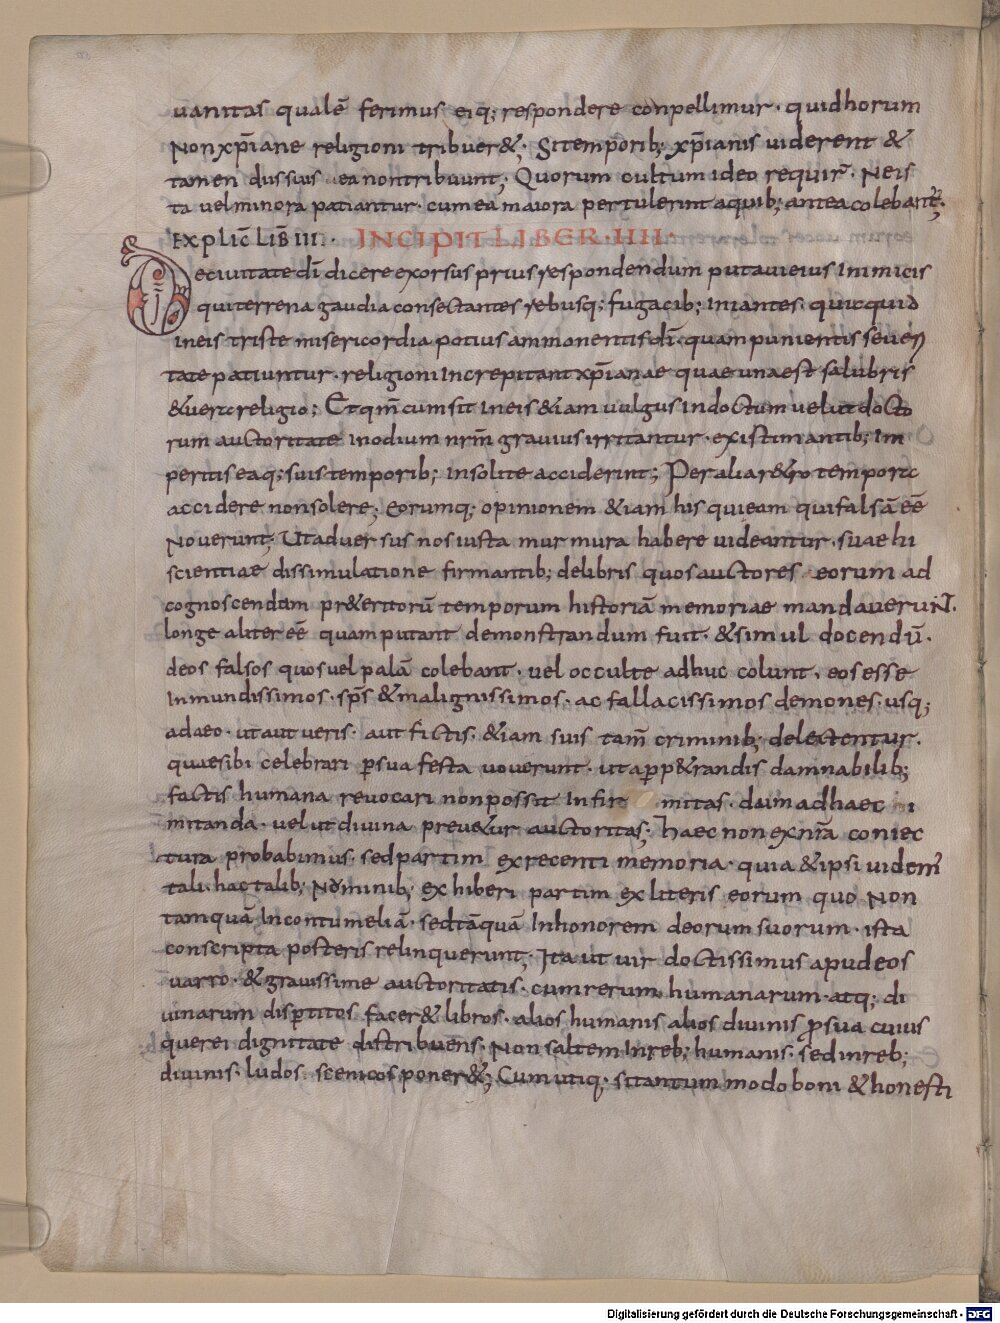 uanitas qualē ferimus eiq; respondere conpellimur · quid horum
Non xp̄iane religioni tribuer&; Si temporib; xp̄ianis uiderent &
tamen dussuis ea non tribuunt; Quorum cultum ideo requir̄ · Ne is
ta uel minora patiantur · cum ea maiora pertulerint a quib; antea colebant̄;
EXPLIC̄ LIB̄ III · INCIPIT LIBER · IIII ·
De ciuitate dī dicere exorsus prius respondendum putaui eius Inimicis
qui terrena gaudia consectantes rebusq; fugacib; Iniantes · quicquid
in eis triste misericordia potius ammonentis dī · quam punientis seueri
tate patiuntur · religioni Increpitant xp̄ianae quae una est salubris
& uera religio; Et qm̄ cum sit In eis &iam uulgus Indoctum uelut docto
rum auctoritate In odium nr̄m grauius irritantur · existimantib; Im
peritis ea q; suis temporib; Insolite acciderint; Per alia r&ro tempora
accidere non solere; Eorumq; opinionem &iam his qui eam qui falsā eē
Nouerunt; Ut aduersus nos iusta murmura habere uideantur · suae hi
scientiae dissimulatione firmantib; de libris quos auctores eorum ad
cognoscendam pr&eritorū temporum historiā memoriae mandauerunt̄.
longe aliter eē quam putant demonstrandum fuit · & simul docendū ·
deos falsos quos uel palā colebant · uel occulte adhuc colunt · eos esse
Inmundissimos · sps̄ & malignissimos · ac fallacissimos demones · usq;
adaeo · ut aut ueris · aut fictis · &iam suis tam̄ criminib; delectentur ·
quae sibi celebrari p sua festa uouerunt · ut a pp&randis damnabilib;
factis humana reuocari non possit Infir mitas · dum ad haec i
mitanda · uelut diuina preu&ur auctoritas; Haec non ex nr̄a coniec
tura probabimus · sed partim ex recenti memoria · quia & ipsi uidem̄
talia hac talib; Numinib; exhiberi partim ex literis eorum quo Non
tamquā In contumeliā · sed tāquā In honorem deorum suorum · ista
conscripta posteris relinquerunt; Ita ut uir doctissimus apud eos
uarro · & grauissime auctoritatis · cum rerum humanarum · atq; di
uinarum disptitos facer& libros · alios humanis alios diuinis p sua cuius
que rei dignitate distribuens · Non saltem In reb; humanis · sed in reb;
diuinis · ludos scenicos poner&; Cum utiq; si tantum modo boni & honesti
Digitalisierung gefördert durch die Deutsche Forschungsgemeinschaft - DFG